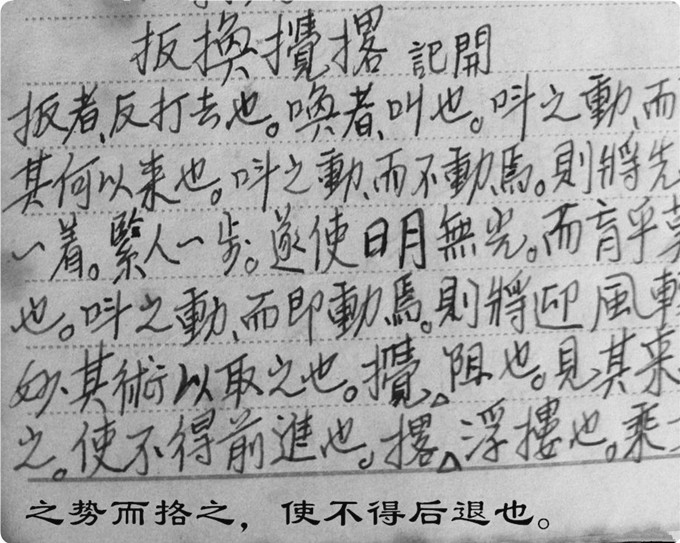 扳換攪撂 記開
扳者、反打去也。喚者、叫也。呌之動、而
其何以来也。呌之動、而不動、焉。則將先
一着。緊人一步。遂使日月無光。而盲乎莫
也。呌之動、而即動焉。則將迎風
妙其術以取之也。攪、阻也。見其来
之。使不得前進也。撂、浮摟也。乘
之势而挌之，使不得后退也。